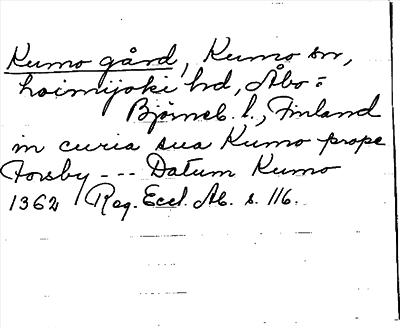 Kumo gård, Kumo sn,
Loimijoki hd, Åbo=
Björneb. l., Finland
in curia sua Kumo prope
Forsby --- Datum Kumo
1362 Reg. Eccl. Ab. s. 116.